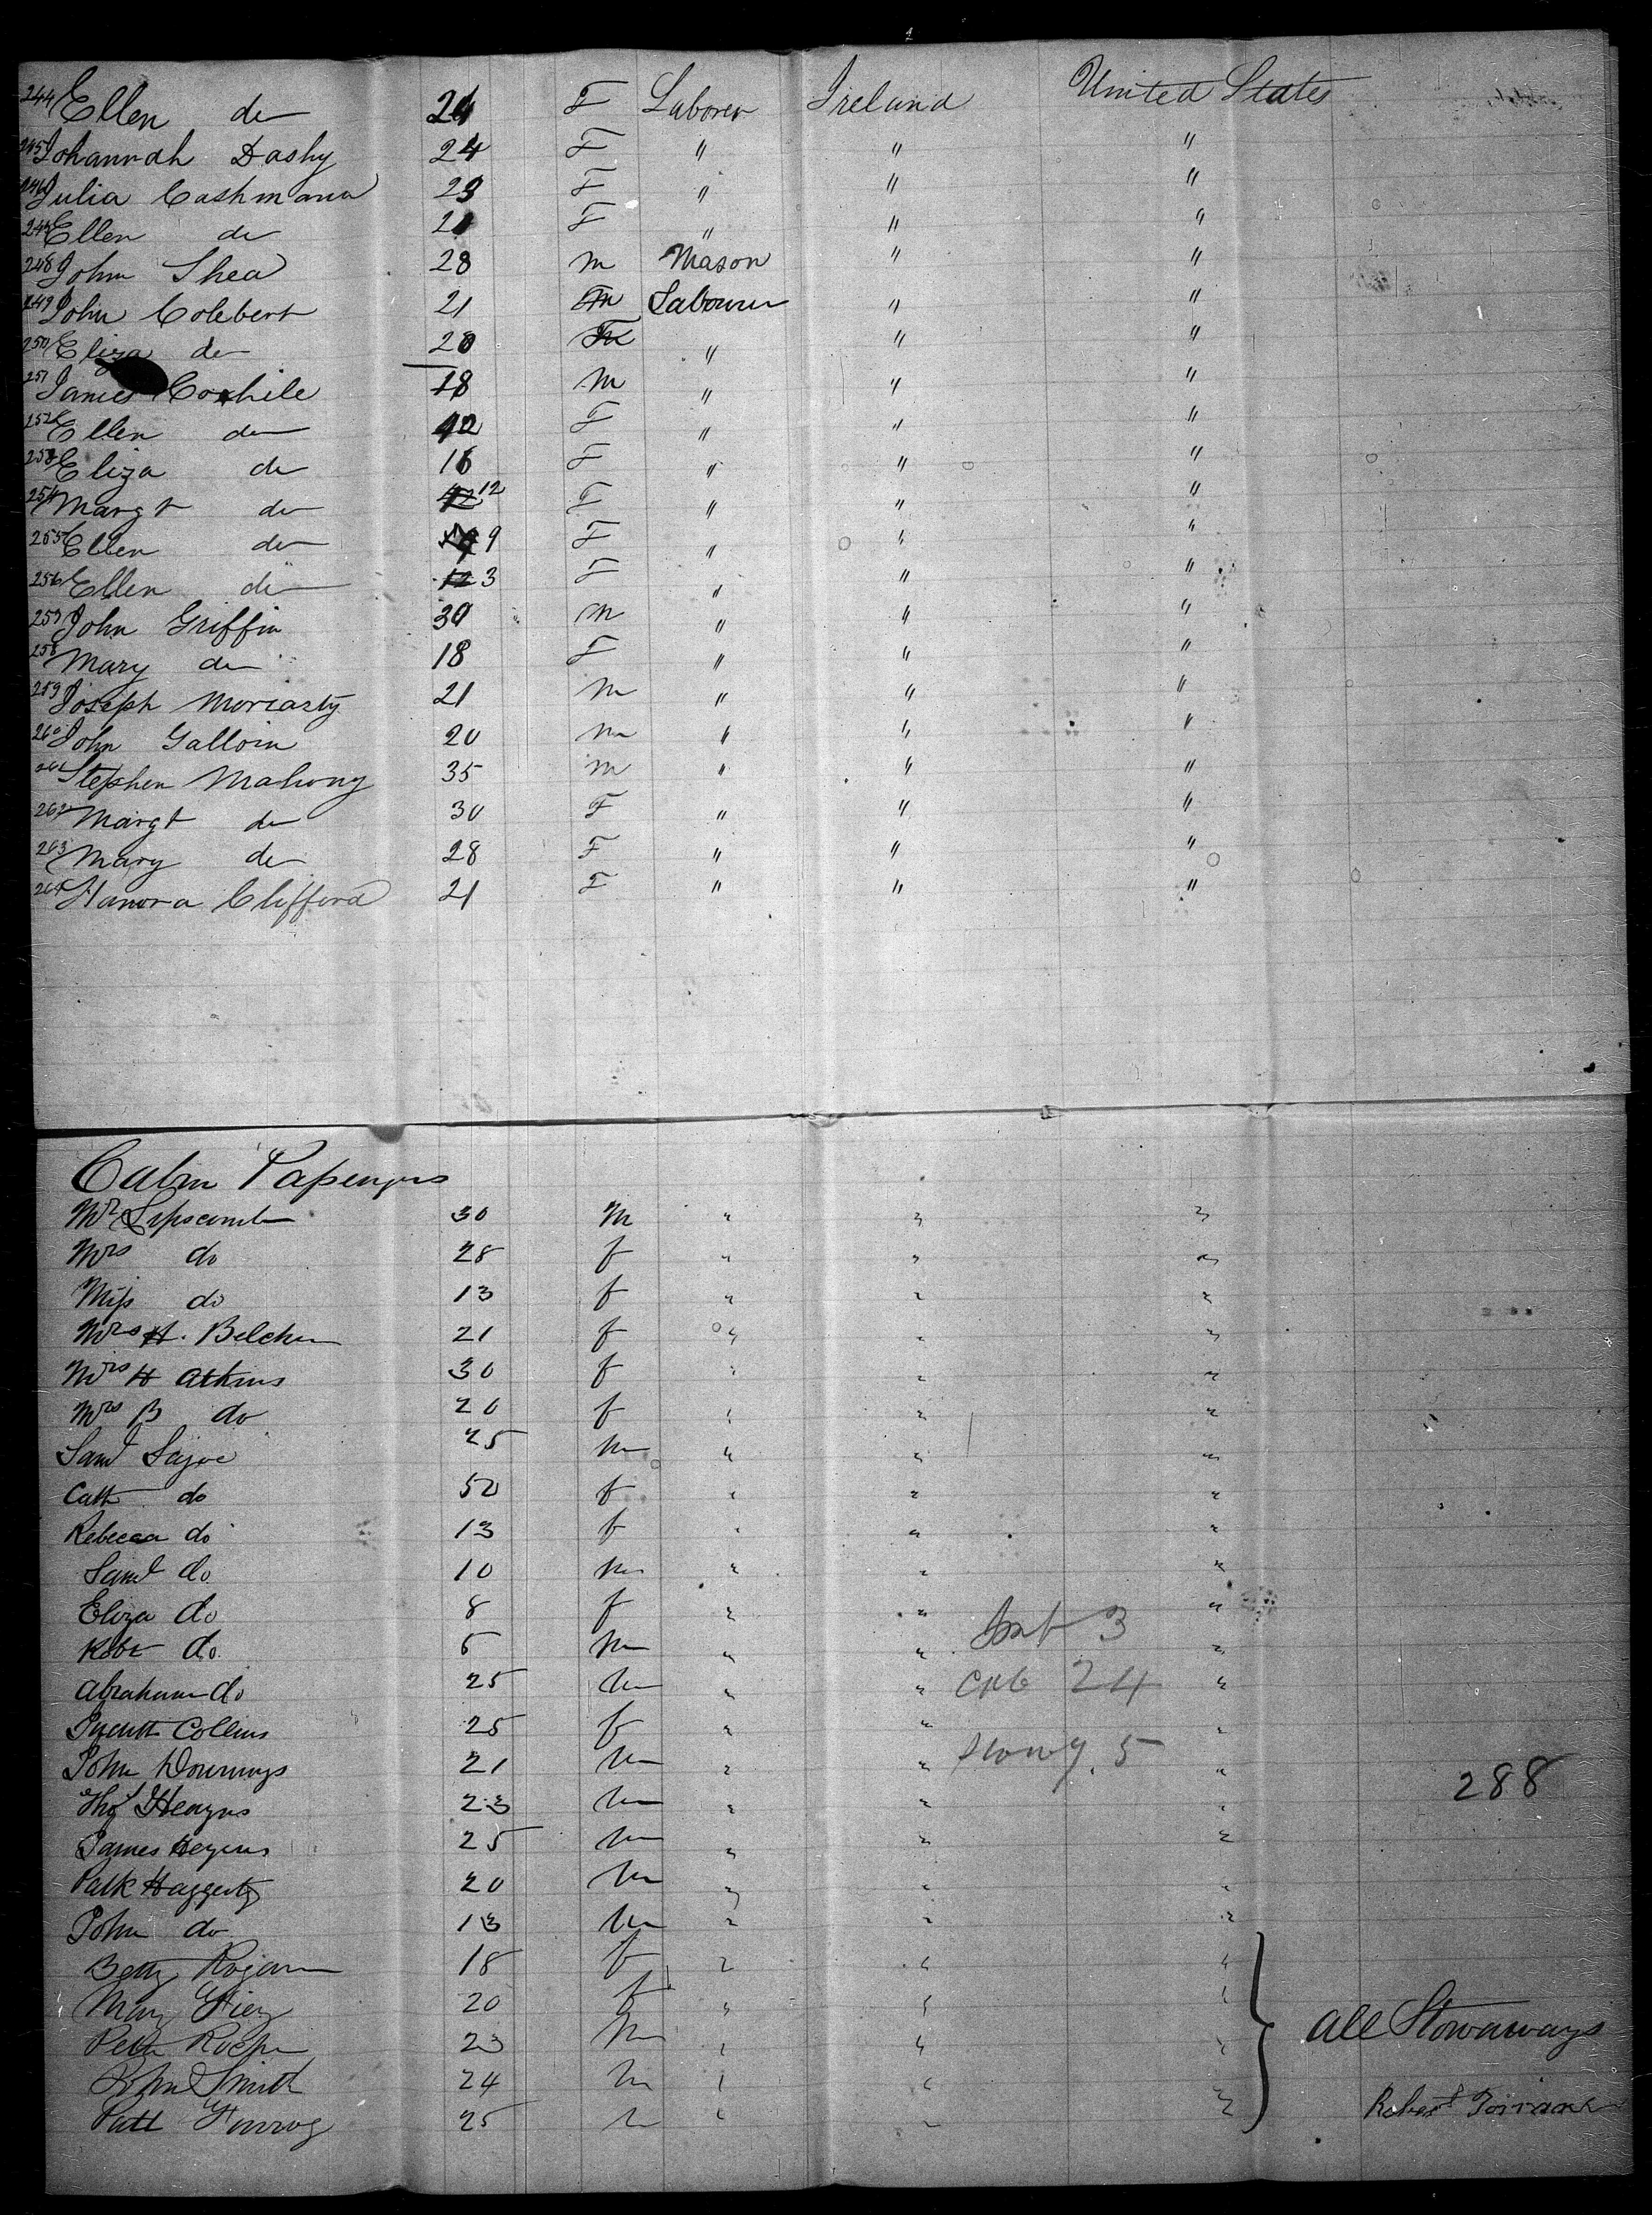 244 Ellen do 24 F Laborer Ireland United States
245 Johannah Dashy 24 F " " "
246 Julia Cashmana 23 F " " "
247 Ellen do 20 F " " "
248 John Shea 28 m Mason " "
249 John Colebert 21 m Labourer " "
250 Eliza do 20 F " " "
251 James Coxhile 18 m " " "
252 Ellen do 12 F " " "
253 Eliza do 16 F " " "
254 Margt do 12 F " " "
255 Ellen do 9 F " " "
256 Ellen do 3 F " " "
257 John Griffin 30 m " " "
258 Mary do 18 F " " "
259 Joseph Moriarty 21 m " " "
260 John Galloin 20 m " " "
261 Stephen Mahony 35 m " " "
262 Margt do 30 F " " "
263 Mary do 28 F " " "
264 Hanora Clifford 21 F " " "
Cabin Passengers
Mr Lipscomb 30 M " " "
Mrs do 28 f " " "
Miss do 13 f " " "
Mrs H. Belcher 21 f " " "
Mrs H Atkins 30 f " " "
Mrs B do 20 f " " "
Saml 25 m " " "
Cath do 50 f " " "
Rebecca do 13 f " " "
Saml do 10 m " " "
Eliza do 8 f " " "
Robt do 5 m " " "
Abraham do 25 m " " "
Collins 25 f " " "
John Downings 21 m " " "
Thos 23 m " " "
James 25 m " " "
Patk Haggerty 20 m " " "
John do 13 m " " "
Betty 18 f " " "
Mary 20 f " " "
Peter 23 m " " "
John Smith 24 m " " "
Patt 25 m " " "
3
Cab 24
Stowy. 5
288
All Stowaways
Robert